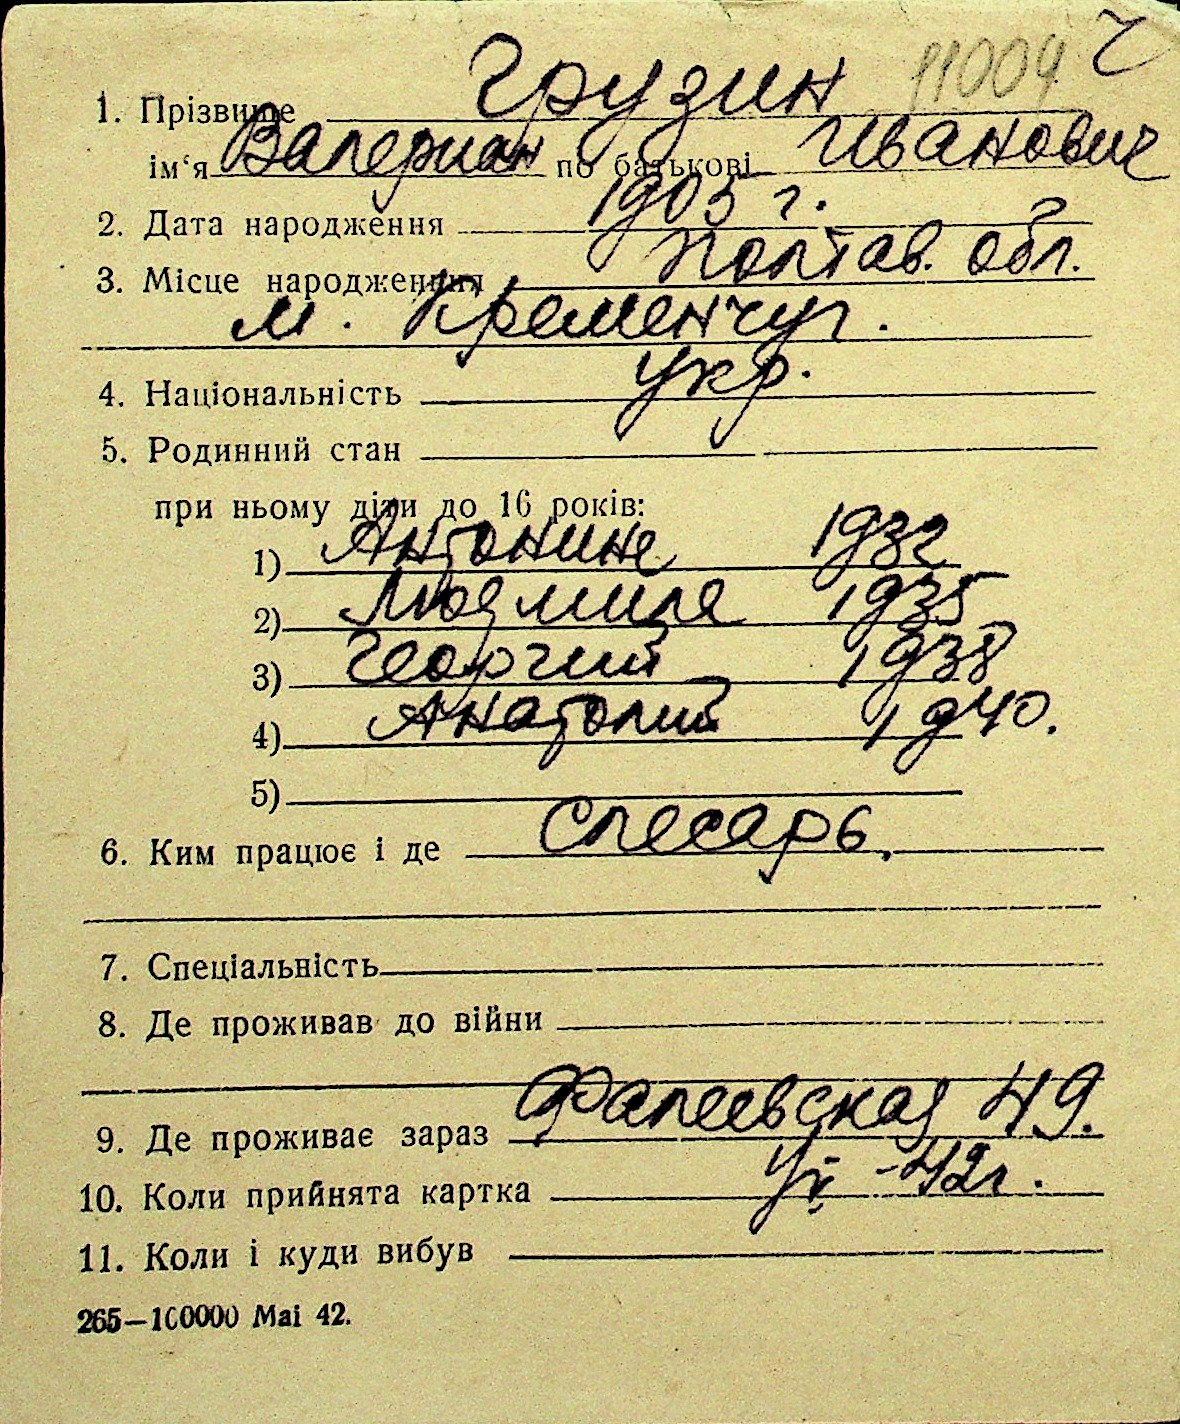 11004 Ч
1. Прізвище Грузин
ім‘я Валериан по батькові Иванович
2. Дата народження 1905 г.
3. Місце народження Полтав. обл.
м. Кременчуг.
4. Національність Укр.
5. Родинний стан
при ньому діти до 16 років:
1) Антонине 1932
2) Людмиля 1935
3) Георгий 1938
4) Анатолий 1940.
5)
6. Ким працює і де Слесарь.
7. Спеціальність
8. Де проживав до війни
9. Де проживає зараз Фалеевская 49.
10. Коли прийнята картка -42г.
11. Коли і куди вибув
265—100000 Mai 42.